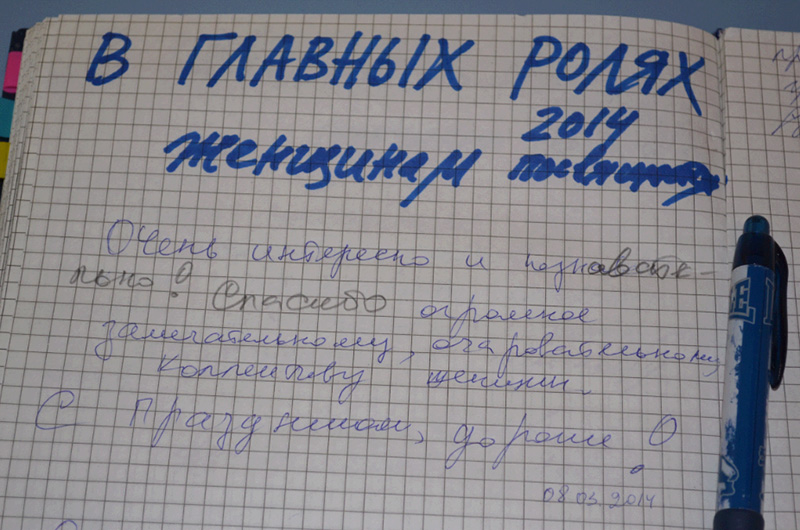 В ГЛАВНЫХ РОЛЯХ
2014
женщинам посвящается
Очень интересно и познавате-
льно! Спасибо огромное
замечательному, очаровательному
коллективу женщин.
С праздником, дорогие!
08.03.2014